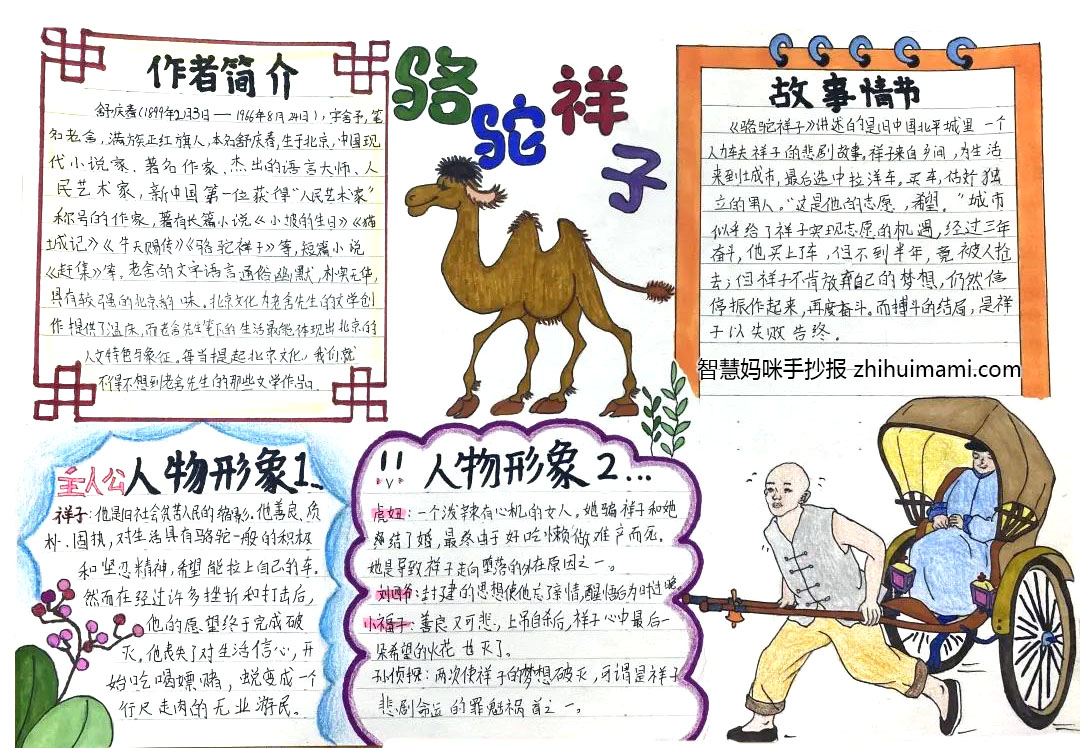 作者简介
舒庆春(1899年2月3日——1966年8月24日),字舍予,笔
名老舍,满族正红旗人,本名舒庆春,生于北京,中国现
代小说家、著名作家、杰出的语言大师、人
民艺术家,新中国第一位获得“人民艺术家”
称号的作家,著有长篇小说《小坡的生日》《猫
城记》《牛天赐传》《骆驼祥子》等,短篇小说
《赶集》等,老舍的文字语言通俗幽默,朴实无华,
具有较强的北京韵味。北京文化为老舍先生的文学创
作提供了温床,而老舍先生笔下的生活最能体现出北京的
人文特色与象征。每当提起北京文化,我们就
不得不想到老舍先生的那些文学作品。
骆驼祥子
故事情节
《骆驼祥子》讲述的是旧中国北平城里一个
人力车夫祥子的悲剧故事。祥子来自乡间,为生活
来到城市,最后选中拉洋车。买车,做好独
立的男人。“这是他的志愿,希望。”城市
似乎给了祥子实现志愿的机遇,经过三年
奋斗,他买上了车,但不到半年,竟被人抢
去;但祥子不肯放弃自己的梦想,仍然停
停振作起来,再度奋斗。而搏斗的结局,是祥
子以失败告终。
智慧妈咪手抄报 zhihuimami.com
主人公人物形象1...
祥子:他是旧社会贫苦人民的缩影。他善良、质
朴、固执,对生活具有骆驼一般的积极
和坚忍精神,希望能拉上自己的车。
然而在经过许多挫折和打击后,
他的愿望终于完成破
灭,他丧失了对生活信心,开
始吃喝嫖赌,蜕变成一个
行尸走肉的无业游民。
!! 人物形象2...
虎妞:一个泼辣有心机的女人,她骗祥子和她
结了婚,最终由于好吃懒做难产而死。
她是导致祥子走向堕落的外在原因之一。
刘四爷:封建的思想使他忘了亲情,醒悟后为时过晚
小福子:善良又可悲,上吊自杀后,祥子心中最后一
朵希望的火花也灭了。
孙侦探:两次使祥子的梦想破灭,可谓是祥子
悲剧命运的罪魁祸首之一。